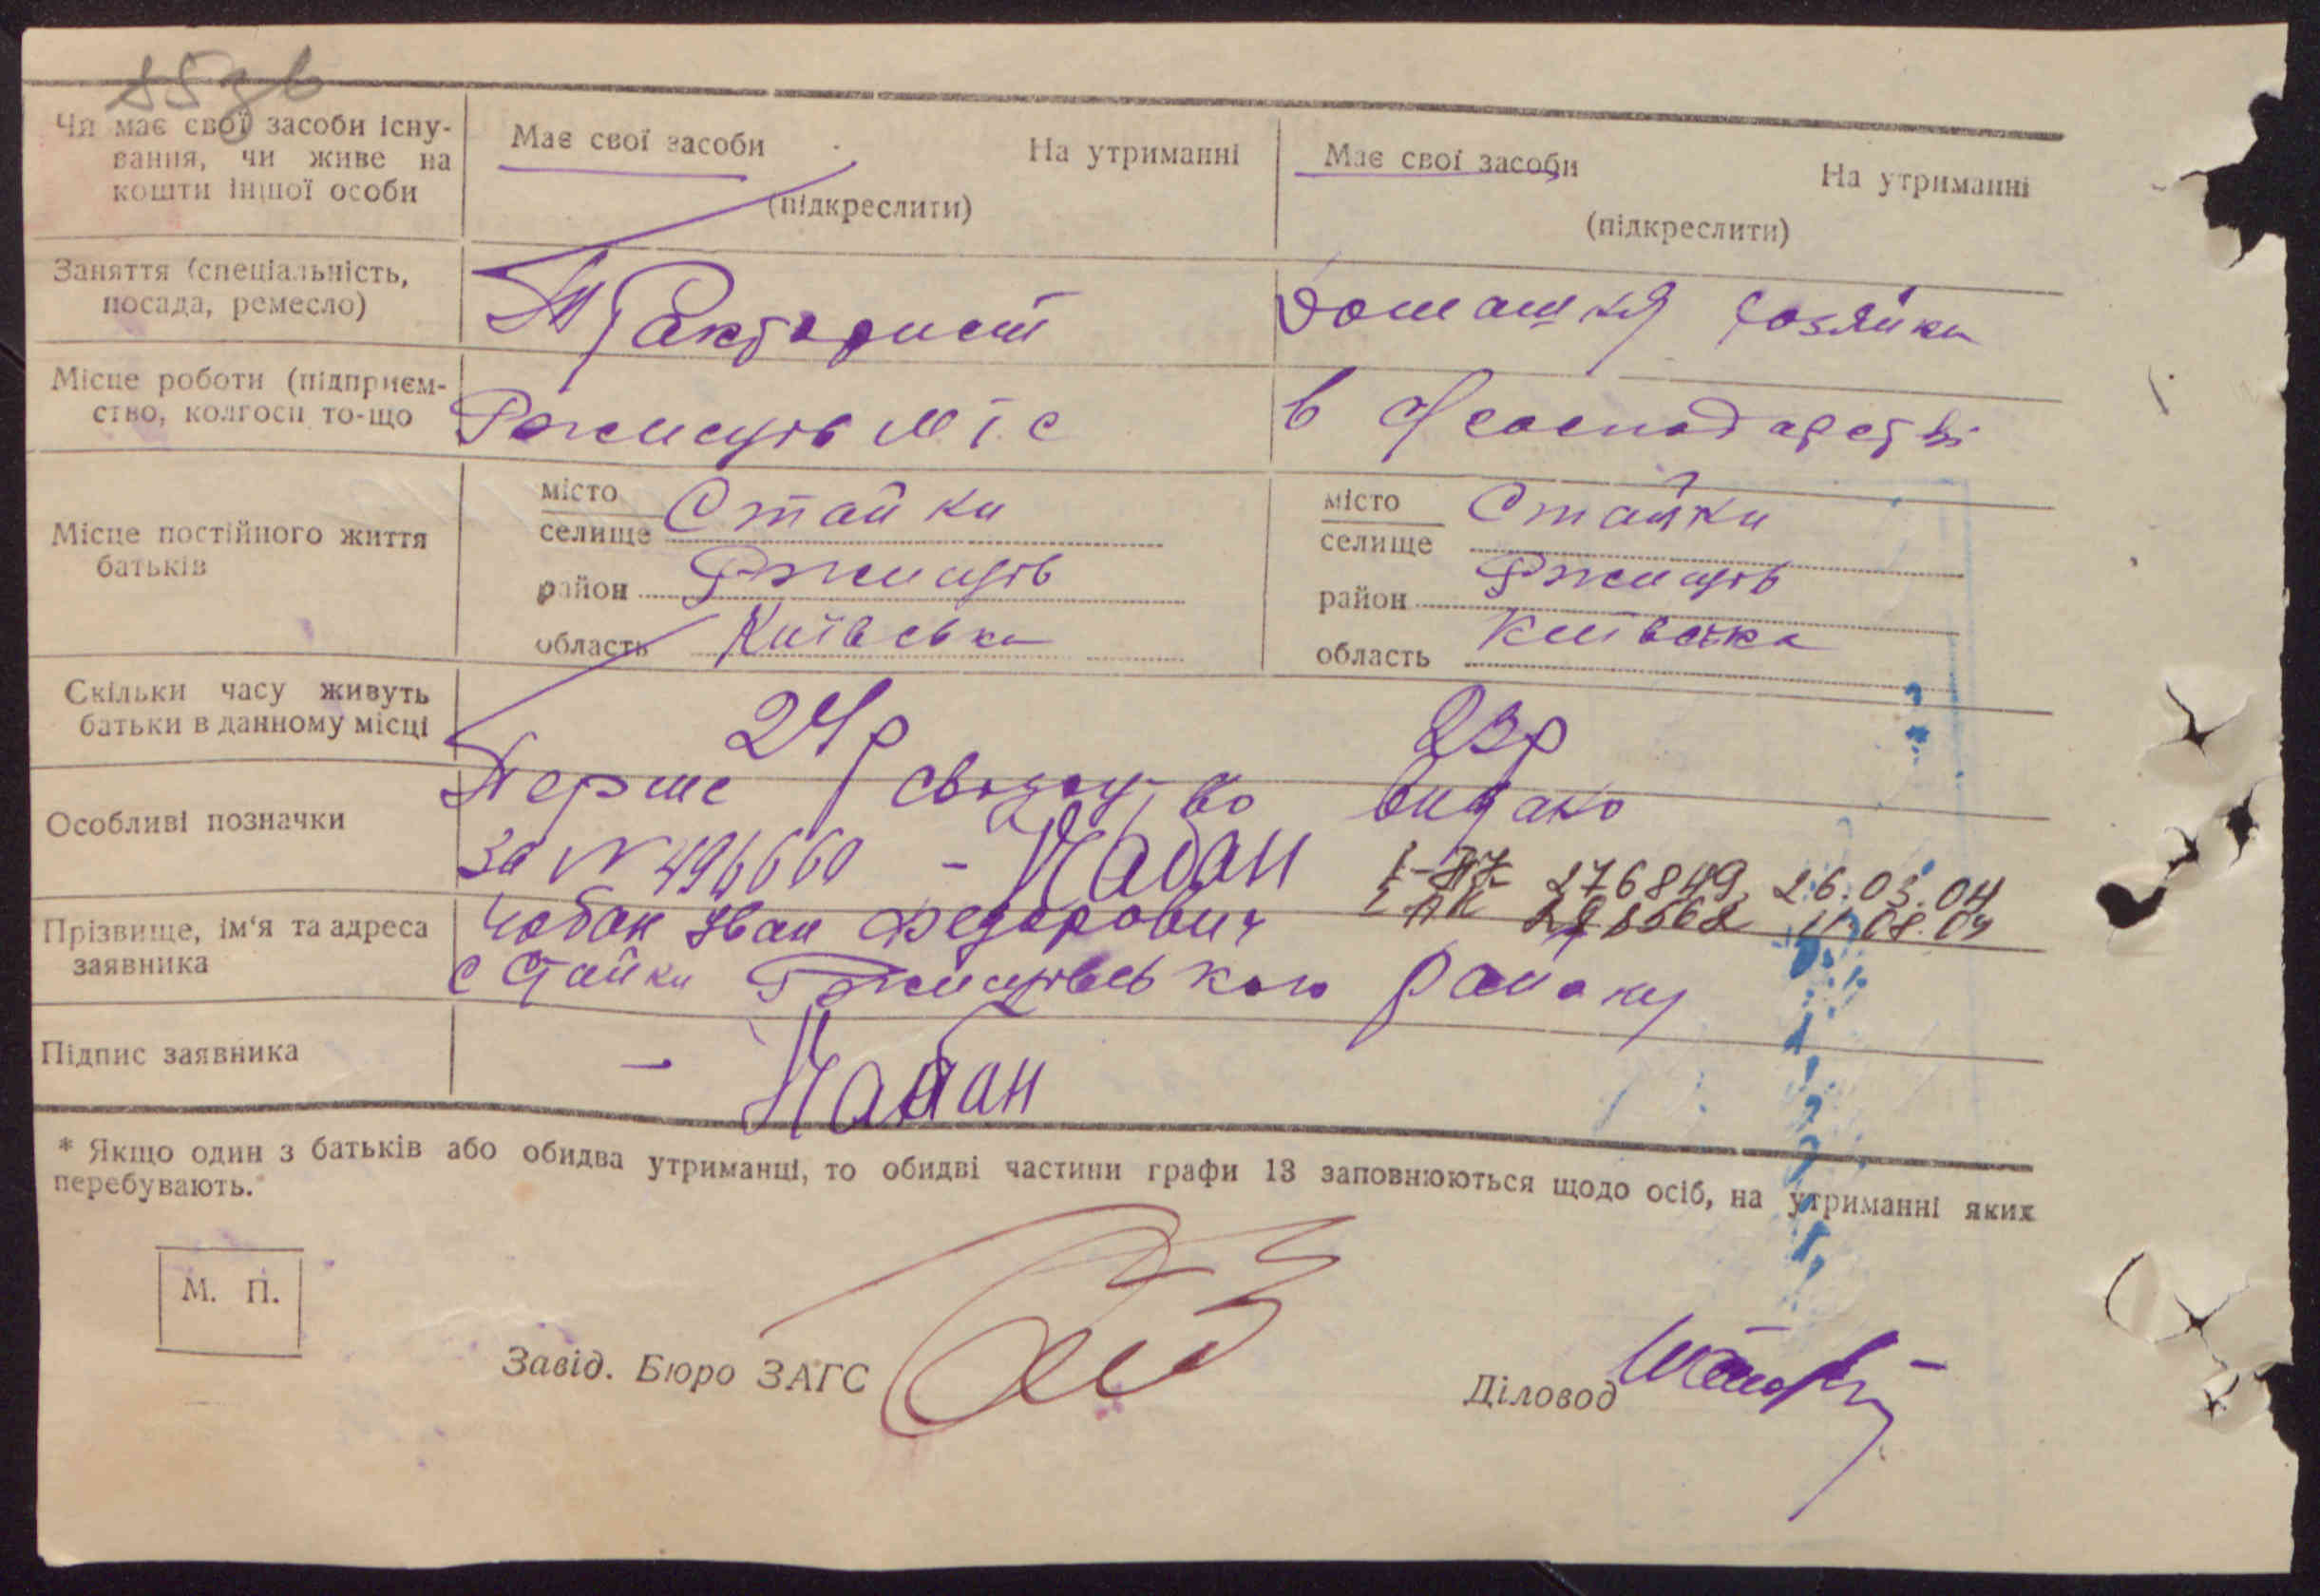 Чи має свої засоби існу-
вання, чи живе на
кошти іншої особи
Має свої засоби На утриманні
(підкреслити)
Має свої засоби На утриманні
(підкреслити)
Заняття (спеціальність,
посада, ремесло)
Тракторист
Домашня хозяйка
Місце роботи (підприєм-
ство, колгосп то-що
Ржищів М Т С
в господарстві
Місце постійного життя
батьків
місто
селище Стайки
район Ржищів
область Київська
місто
селище Стайки
район Ржищів
область Київська
Скільки часу живуть
батьки в данному місці
24 р
23 р
Особливі позначки
Перше свідоцтво видано
за № 496660 – Чабан
276849 26.03.04
Прізвище, ім‘я та адреса
заявника
Чабан Іван Федорович
с Стайки Ржищівського району
Підпис заявника
– Чабан
* Якщо один з батьків або обидва утриманці, то обидві частини графи 13 заповнюються щодо осіб, на утриманні яких
перебувають.
М. П.
Завід. Бюро ЗАГС
Діловод